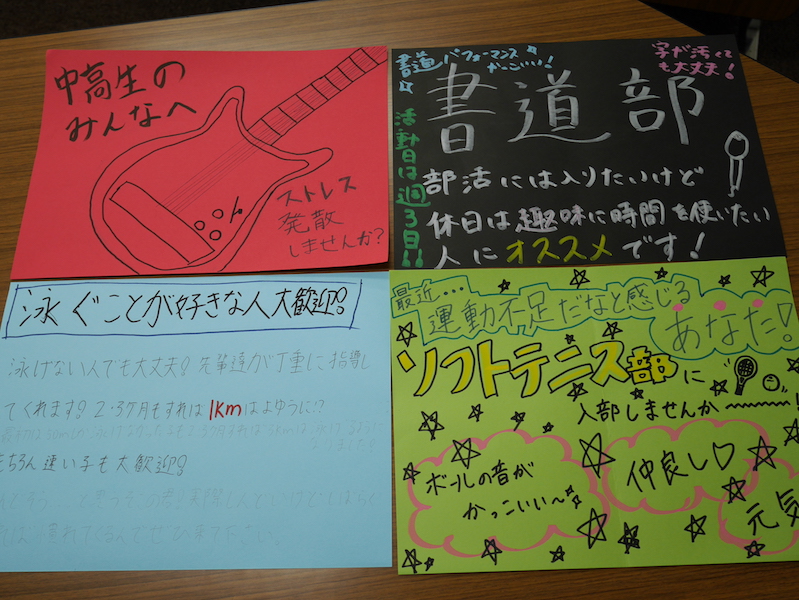 中高生の
みんなへ
ストレス
発散
しませんか?
書道パフォーマンス
かっこいい!
字が汚くて
も大丈夫!
書道部
活動日は週3日!!
部活には入りたいけど
休日は趣味に時間を使いたい
人にオススメです!
泳ぐことが好きな人大歓迎!
泳げない人でも大丈夫!先輩達が丁重に指導し
てくれます!2・3ヶ月もすれば1kmはよゆうに!?
もちろん速い子も大歓迎!
最近…
運動不足だなと感じる
あなた!
ソフトテニス部に
入部しませんか~~~!
ボールの音が
かっこいい~
仲良し♡
元気